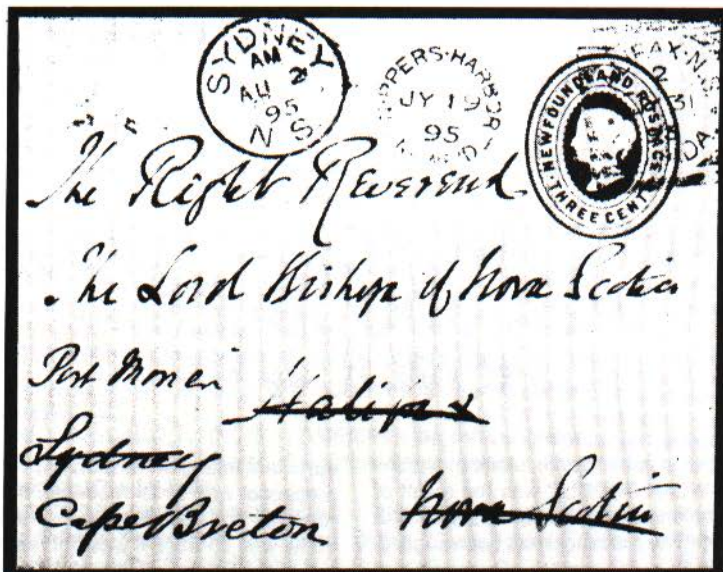 SYDNEY
AM
AU 2
95
N S
PPERS-HARBOR
JY 19
95
FAX. N.S.
2
31
DA
NEWFOUNDLAND POSTAGE
THREE CENT
The Right Reverend
The Lord Bishop of Nova Scotia
Port Morien
Halifax
Sydney
Cape Breton
Nova Scotia